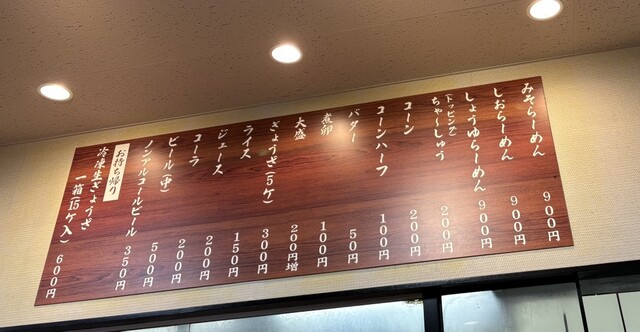 みそらーめん 900円
しおらーめん 900円
しょうゆらーめん 900円
(トッピング)
ちゃーしゅう 200円
コーン 200円
コーンハーフ 100円
バター 50円
煮卵 100円
大盛 200円増
ぎょうざ(5ケ) 300円
ライス 150円
ジュース 200円
コーラ 200円
ビール(中) 500円
ノンアルコールビール 350円
お持ち帰り
冷凍生ぎょうざ
一箱(15ケ入) 600円